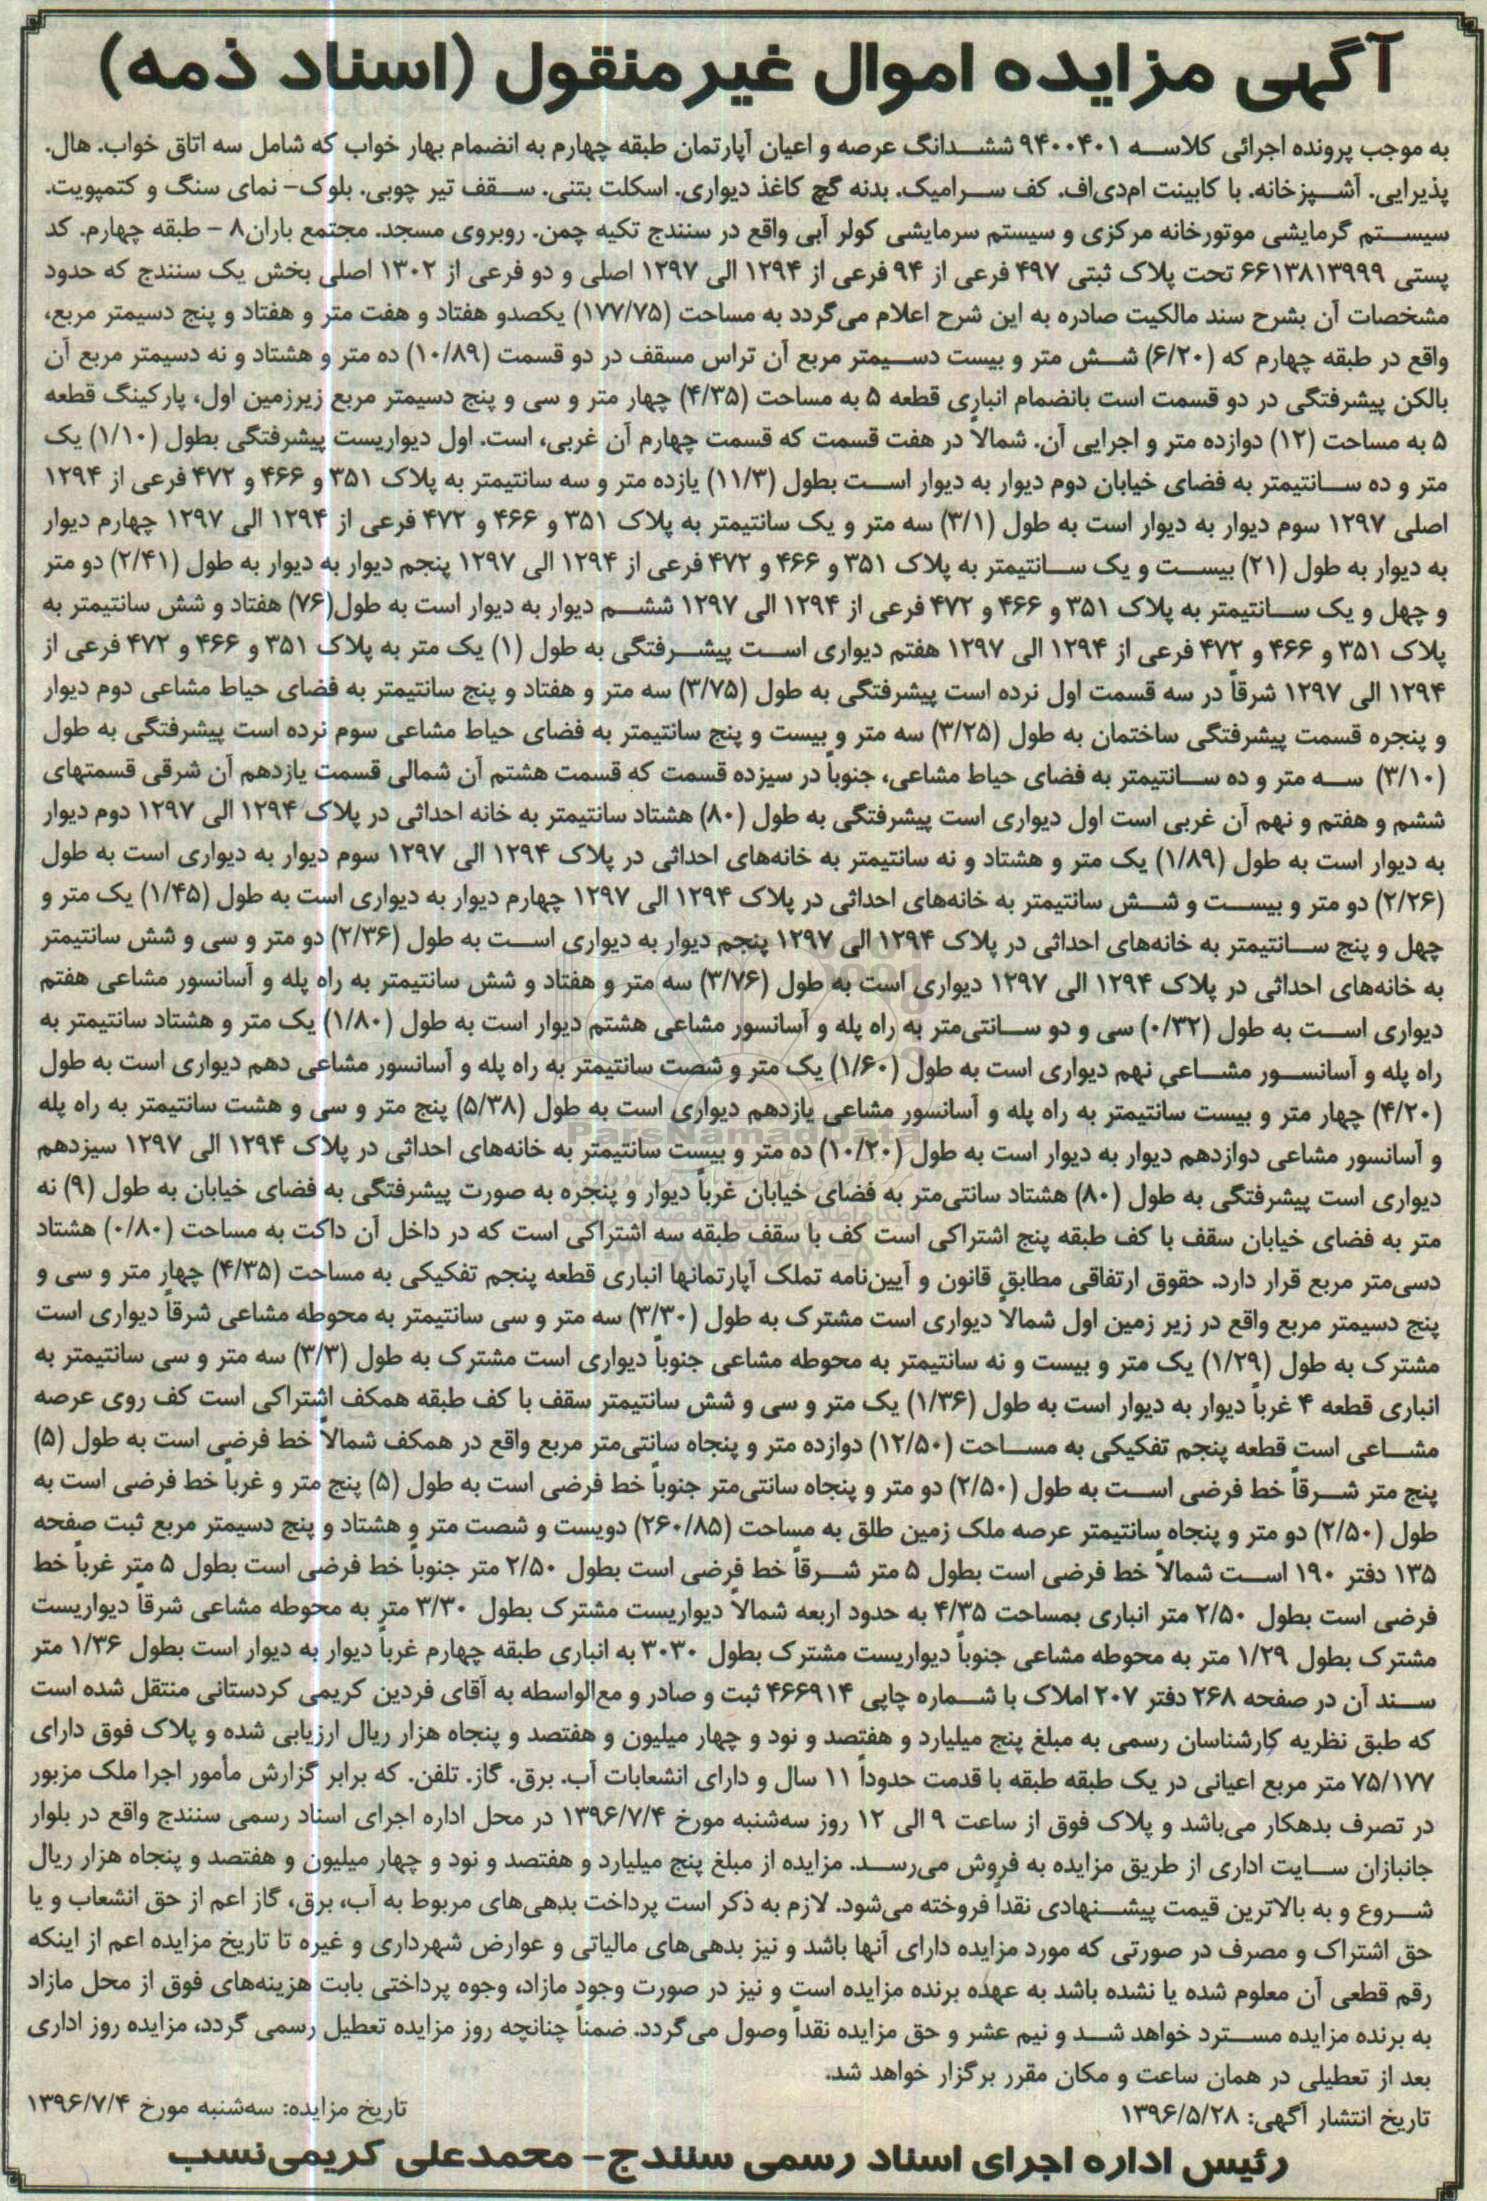 آگهی مزایده اموال غیرمنقول (اسناد ذمه)
به موجب پرونده اجرائی کلاسه ۹۴۰۰۴۰۱ ششدانگ عرصه و اعیان آپارتمان طبقه چهارم به انضمام بهار خواب که شامل سه اتاق خواب. هال.
پذیرایی. آشپزخانه. با کابینت ام‌دی‌اف. کف سرامیک. بدنه گچ کاغذ دیواری. اسکلت بتنی. سقف تیر چوبی. بلوک- نمای سنگ و کتمپویت.
سیستم گرمایشی موتورخانه مرکزی و سیستم سرمایشی کولر آبی واقع در سنندج تکیه چمن. روبروی مسجد. مجتمع باران۸ - طبقه چهارم. کد
پستی ۶۶۱۳۸۱۳۹۹۹ تحت پلاک ثبتی ۴۹۷ فرعی از ۹۴ فرعی از ۱۲۹۴ الی ۱۲۹۷ اصلی و دو فرعی از ۱۳۰۲ اصلی بخش یک سنندج که حدود
مشخصات آن بشرح سند مالکیت صادره به این شرح اعلام می‌گردد به مساحت (۱۷۷/۷۵) یکصدو هفتاد و هفت متر و هفتاد و پنج دسیمتر مربع،
واقع در طبقه چهارم که (۶/۲۰) شش متر و بیست دسیمتر مربع آن تراس مسقف در دو قسمت (۱۰/۸۹) ده متر و هشتاد و نه دسیمتر مربع آن
بالکن پیشرفتگی در دو قسمت است بانضمام انباری قطعه ۵ به مساحت (۴/۳۵) چهار متر و سی و پنج دسیمتر مربع زیرزمین اول، پارکینگ قطعه
۵ به مساحت (۱۲) دوازده متر و اجرایی آن. شمالاً در هفت قسمت که قسمت چهارم آن غربی، است. اول دیواریست پیشرفتگی بطول (۱/۱۰) یک
متر و ده سانتیمتر به فضای خیابان دوم دیوار به دیوار است بطول (۱۱/۳) یازده متر و سه سانتیمتر به پلاک ۳۵۱ و ۴۶۶ و ۴۷۲ فرعی از ۱۲۹۴
اصلی ۱۲۹۷ سوم دیوار به دیوار است به طول (۳/۱) سه متر و یک سانتیمتر به پلاک ۳۵۱ و ۴۶۶ و ۴۷۲ فرعی از ۱۲۹۴ الی ۱۲۹۷ چهارم دیوار
به دیوار به طول (۲۱) بیست و یک سانتیمتر به پلاک ۳۵۱ و ۴۶۶ و ۴۷۲ فرعی از ۱۲۹۴ الی ۱۲۹۷ پنجم دیوار به دیوار به طول (۲/۴۱) دو متر
و چهل و یک سانتیمتر به پلاک ۳۵۱ و ۴۶۶ و ۴۷۲ فرعی از ۱۲۹۴ الی ۱۲۹۷ ششم دیوار به دیوار است به طول(۷۶) هفتاد و شش سانتیمتر به
پلاک ۳۵۱ و ۴۶۶ و ۴۷۲ فرعی از ۱۲۹۴ الی ۱۲۹۷ هفتم دیواری است پیشرفتگی به طول (۱) یک متر به پلاک ۳۵۱ و ۴۶۶ و ۴۷۲ فرعی از
۱۲۹۴ الی ۱۲۹۷ شرقاً در سه قسمت اول نرده است پیشرفتگی به طول (۳/۷۵) سه متر و هفتاد و پنج سانتیمتر به فضای حیاط مشاعی دوم دیوار
و پنجره قسمت پیشرفتگی ساختمان به طول (۳/۲۵) سه متر و بیست و پنج سانتیمتر به فضای حیاط مشاعی سوم نرده است پیشرفتگی به طول
(۳/۱۰) سه متر و ده سانتیمتر به فضای حیاط مشاعی، جنوباً در سیزده قسمت که قسمت هشتم آن شمالی قسمت یازدهم آن شرقی قسمتهای
ششم و هفتم و نهم آن غربی است اول دیواری است پیشرفتگی به طول (۸۰) هشتاد سانتیمتر به خانه احداثی در پلاک ۱۲۹۴ الی ۱۲۹۷ دوم دیوار
به دیوار است به طول (۱/۸۹) یک متر و هشتاد و نه سانتیمتر به خانه‌های احداثی در پلاک ۱۲۹۴ الی ۱۲۹۷ سوم دیوار به دیواری است به طول
(۲/۲۶) دو متر و بیست و شش سانتیمتر به خانه‌های احداثی در پلاک ۱۲۹۴ الی ۱۲۹۷ چهارم دیوار به دیواری است به طول (۱/۴۵) یک متر و
چهل و پنج سانتیمتر به خانه‌های احداثی در پلاک ۱۲۹۴ الی ۱۲۹۷ پنجم دیوار به دیواری است به طول (۲/۳۶) دو متر و سی و شش سانتیمتر
به خانه‌های احداثی در پلاک ۱۲۹۴ الی ۱۲۹۷ دیواری است به طول (۳/۷۶) سه متر و هفتاد و شش سانتیمتر به راه پله و آسانسور مشاعی هفتم
دیواری است به طول (۰/۳۲) سی و دو سانتی‌متر به راه پله و آسانسور مشاعی هشتم دیوار است به طول (۱/۸۰) یک متر و هشتاد سانتیمتر به
راه پله و آسانسور مشاعی نهم دیواری است به طول (۱/۶۰) یک متر و شصت سانتیمتر به راه پله و آسانسور مشاعی دهم دیواری است به طول
(۴/۲۰) چهار متر و بیست سانتیمتر به راه پله و آسانسور مشاعی یازدهم دیواری است به طول (۵/۳۸) پنج متر و سی و هشت سانتیمتر به راه پله
و آسانسور مشاعی دوازدهم دیوار به دیوار است به طول (۱۰/۲۰) ده متر و بیست سانتیمتر به خانه‌های احداثی در پلاک ۱۲۹۴ الی ۱۲۹۷ سیزدهم
دیواری است پیشرفتگی به طول (۸۰) هشتاد سانتی‌متر به فضای خیابان غرباً دیوار و پنجره به صورت پیشرفتگی به فضای خیابان به طول (۹) نه
متر به فضای خیابان سقف با کف طبقه پنج اشتراکی است کف با سقف طبقه سه اشتراکی است که در داخل آن داکت به مساحت (۰/۸۰) هشتاد
دسی‌متر مربع قرار دارد. حقوق ارتفاقی مطابق قانون و آیین‌نامه تملک آپارتمانها انباری قطعه پنجم تفکیکی به مساحت (۴/۳۵) چهار متر و سی و
پنج دسیمتر مربع واقع در زیر زمین اول شمالاً دیواری است مشترک به طول (۳/۳۰) سه متر و سی سانتیمتر به محوطه مشاعی شرقاً دیواری است
مشترک به طول (۱/۲۹) یک متر و بیست و نه سانتیمتر به محوطه مشاعی جنوباً دیواری است مشترک به طول (۳/۳) سه متر و سی سانتیمتر به
انباری قطعه ۴ غرباً دیوار به دیوار است به طول (۱/۳۶) یک متر و سی و شش سانتیمتر سقف با کف طبقه همکف اشتراکی است کف روی عرصه
مشاعی است قطعه پنجم تفکیکی به مساحت (۱۲/۵۰) دوازده متر و پنجاه سانتی‌متر مربع واقع در همکف شمالاً خط فرضی است به طول (۵)
پنج متر شرقاً خط فرضی است به طول (۲/۵۰) دو متر و پنجاه سانتی‌متر جنوباً خط فرضی است به طول (۵) پنج متر و غرباً خط فرضی است به
طول (۲/۵۰) دو متر و پنجاه سانتیمتر عرصه ملک زمین طلق به مساحت (۲۶۰/۸۵) دویست و شصت متر و هشتاد و پنج دسیمتر مربع ثبت صفحه
۱۳۵ دفتر ۱۹۰ است شمالاً خط فرضی است بطول ۵ متر شرقاً خط فرضی است بطول ۲/۵۰ متر جنوباً خط فرضی است بطول ۵ متر غرباً خط
فرضی است بطول ۲/۵۰ متر انباری بمساحت ۴/۳۵ به حدود اربعه شمالاً دیواریست مشترک بطول ۳/۳۰ متر به محوطه مشاعی شرقاً دیواریست
مشترک بطول ۱/۲۹ متر به محوطه مشاعی جنوباً دیواریست مشترک بطول ۳۰۳۰ به انباری طبقه چهارم غرباً دیوار به دیوار است بطول ۱/۳۶ متر
سند آن در صفحه ۲۶۸ دفتر ۲۰۷ املاک با شماره چاپی ۴۶۶۹۱۴ ثبت و صادر و مع‌الواسطه به آقای فردین کریمی کردستانی منتقل شده است
که طبق نظریه کارشناسان رسمی به مبلغ پنج میلیارد و هفتصد و نود و چهار میلیون و هفتصد و پنجاه هزار ریال ارزیابی شده و پلاک فوق دارای
۷۵/۱۷۷ متر مربع اعیانی در یک طبقه طبقه با قدمت حدوداً ۱۱ سال و دارای انشعابات آب. برق. گاز. تلفن. که برابر گزارش مأمور اجرا ملک مزبور
در تصرف بدهکار می‌باشد و پلاک فوق از ساعت ۹ الی ۱۲ روز سه‌شنبه مورخ ۱۳۹۶/۷/۴ در محل اداره اجرای اسناد رسمی سنندج واقع در بلوار
جانبازان سایت اداری از طریق مزایده به فروش می‌رسد. مزایده از مبلغ پنج میلیارد و هفتصد و نود و چهار میلیون و هفتصد و پنجاه هزار ریال
شروع و به بالاترین قیمت پیشنهادی نقداً فروخته می‌شود. لازم به ذکر است پرداخت بدهی‌های مربوط به آب، برق، گاز اعم از حق انشعاب و یا
حق اشتراک و مصرف در صورتی که مورد مزایده دارای آنها باشد و نیز بدهی‌های مالیاتی و عوارض شهرداری و غیره تا تاریخ مزایده اعم از اینکه
رقم قطعی آن معلوم شده یا نشده باشد به عهده برنده مزایده است و نیز در صورت وجود مازاد، وجوه پرداختی بابت هزینه‌های فوق از محل مازاد
به برنده مزایده مسترد خواهد شد و نیم عشر و حق مزایده نقداً وصول می‌گردد. ضمناً چنانچه روز مزایده تعطیل رسمی گردد، مزایده روز اداری
بعد از تعطیلی در همان ساعت و مکان مقرر برگزار خواهد شد.
تاریخ انتشار آگهی: ۱۳۹۶/۵/۲۸ تاریخ مزایده: سه‌شنبه مورخ ۱۳۹۶/۷/۴
رئیس اداره اجرای اسناد رسمی سنندج- محمدعلی کریمی‌نسب
ParsNamadData